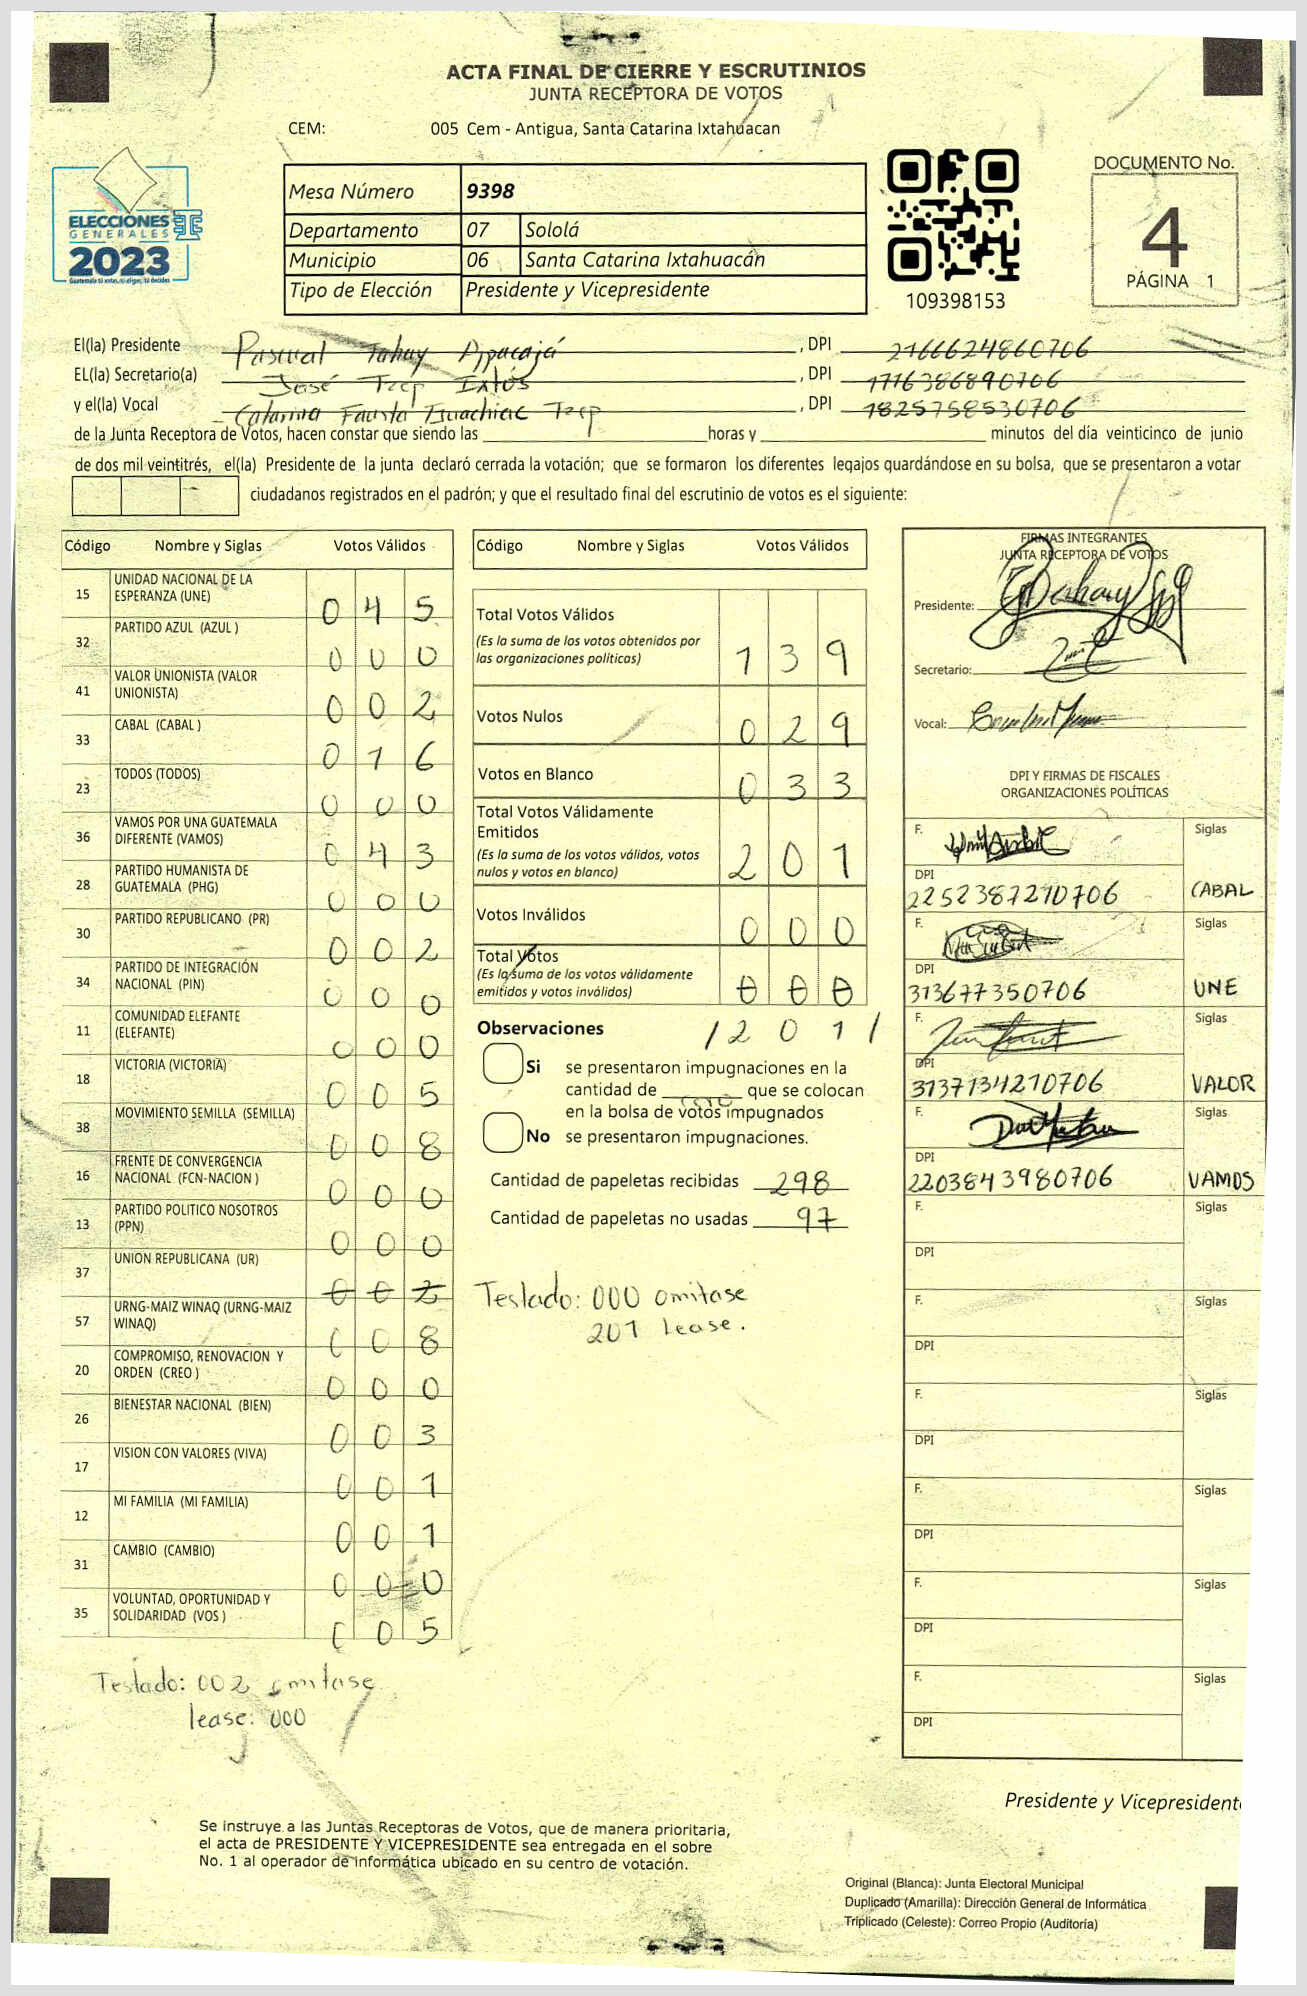 ACTA FINAL DE CIERRE Y ESCRUTINIOS
JUNTA RECEPTORA DE VOTOS
CEM: 005 Cem - Antigua, Santa Catarina Ixtahuacan
ELECCIONES
GENERALES
2023
Mesa Número 9398
Departamento 07 Sololá
Municipio 06 Santa Catarina Ixtahuacán
Tipo de Elección Presidente y Vicepresidente
109398153
DOCUMENTO No.
4
PÁGINA 1
El(la) Presidente Pascual Tahay Appacajá, DPI 2166624860706
EL(la) Secretario(a) José Tzep Ixtós, DPI 1716386890706
y el(la) Vocal Catarina Fausta Guachiac Tzep, DPI 1825758530706
de la Junta Receptora de Votos, hacen constar que siendo las horas y minutos del día veinticinco de junio
de dos mil veintitrés, el(la) Presidente de la junta declaró cerrada la votación; que se formaron los diferentes legajos guardándose en su bolsa, que se presentaron a votar
ciudadanos registrados en el padrón; y que el resultado final del escrutinio de votos es el siguiente:
Código Nombre y Siglas Votos Válidos
15 UNIDAD NACIONAL DE LA ESPERANZA (UNE) 0 4 5
32 PARTIDO AZUL (AZUL ) 0 0 0
41 VALOR UNIONISTA (VALOR UNIONISTA) 0 0 2
33 CABAL (CABAL ) 0 1 6
23 TODOS (TODOS) 0 0 0
36 VAMOS POR UNA GUATEMALA DIFERENTE (VAMOS) 0 4 3
28 PARTIDO HUMANISTA DE GUATEMALA (PHG) 0 0 0
30 PARTIDO REPUBLICANO (PR) 0 0 2
34 PARTIDO DE INTEGRACIÓN NACIONAL (PIN) 0 0 0
11 COMUNIDAD ELEFANTE (ELEFANTE) 0 0 0
18 VICTORIA (VICTORIA) 0 0 5
38 MOVIMIENTO SEMILLA (SEMILLA) 0 0 8
16 FRENTE DE CONVERGENCIA NACIONAL (FCN-NACION ) 0 0 0
13 PARTIDO POLITICO NOSOTROS (PPN) 0 0 0
37 UNION REPUBLICANA (UR) 0 0 2
57 URNG-MAIZ WINAQ (URNG-MAIZ WINAQ) 0 0 8
20 COMPROMISO, RENOVACION Y ORDEN (CREO ) 0 0 0
26 BIENESTAR NACIONAL (BIEN) 0 0 3
17 VISION CON VALORES (VIVA) 0 0 1
12 MI FAMILIA (MI FAMILIA) 0 0 1
31 CAMBIO (CAMBIO) 0 0 0
35 VOLUNTAD, OPORTUNIDAD Y SOLIDARIDAD (VOS ) 0 0 5
Teslado: 002 omitase
lease: 000
Código Nombre y Siglas Votos Válidos
Total Votos Válidos
(Es la suma de los votos obtenidos por
las organizaciones políticas) 1 3 9
Votos Nulos 0 2 9
Votos en Blanco 0 3 3
Total Votos Válidamente
Emitidos
(Es la suma de los votos válidos, votos
nulos y votos en blanco) 2 0 1
Votos Inválidos 0 0 0
Total Votos
(Es la suma de los votos válidamente
emitidos y votos inválidos) 0 0 0
Observaciones / 2 0 1 /
Si se presentaron impugnaciones en la
cantidad de que se colocan
en la bolsa de votos impugnados
No se presentaron impugnaciones.
Cantidad de papeletas recibidas 298
Cantidad de papeletas no usadas 97
Teslado: 000 omitase
201 lease.
FIRMAS INTEGRANTES
JUNTA RECEPTORA DE VOTOS
Presidente:
Secretario:
Vocal:
DPI Y FIRMAS DE FISCALES
ORGANIZACIONES POLÍTICAS
F. Siglas
DPI
2252387210706 CABAL
F. Siglas
DPI
313677350706 UNE
F. Siglas
DPI
3137134210706 VALOR
F. Siglas
DPI
2203843980706 VAMOS
F. Siglas
DPI
F. Siglas
DPI
F. Siglas
DPI
F. Siglas
DPI
F. Siglas
DPI
F. Siglas
DPI
Presidente y Vicepresident
Se instruye a las Juntas Receptoras de Votos, que de manera prioritaria,
el acta de PRESIDENTE Y VICEPRESIDENTE sea entregada en el sobre
No. 1 al operador de informática ubicado en su centro de votación.
Original (Blanca): Junta Electoral Municipal
Duplicado (Amarilla): Dirección General de Informática
Triplicado (Celeste): Correo Propio (Auditoría)